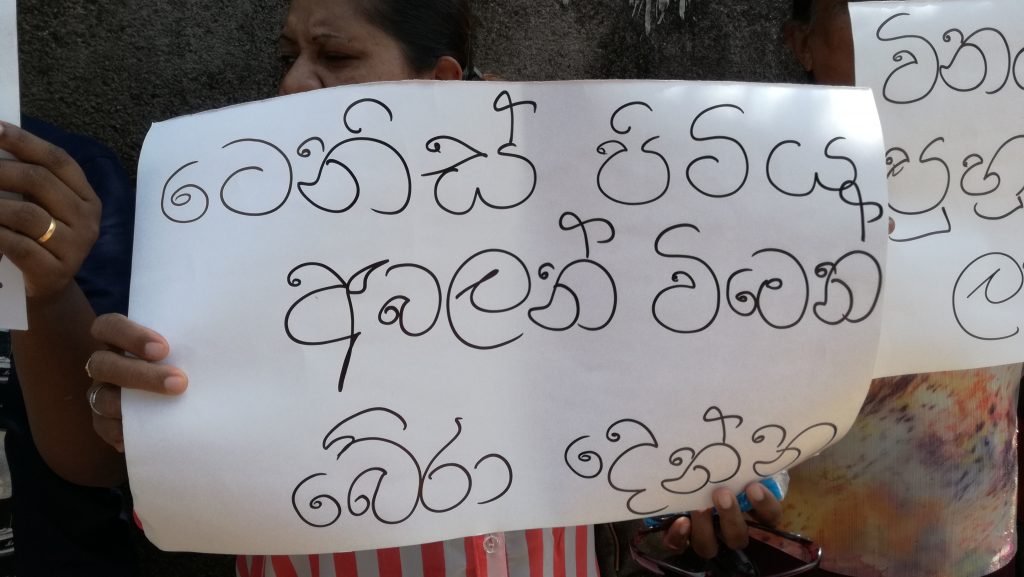 ටෙනිස් පිටිය
අබලන් විමෙන්
බේරා දෙන්න